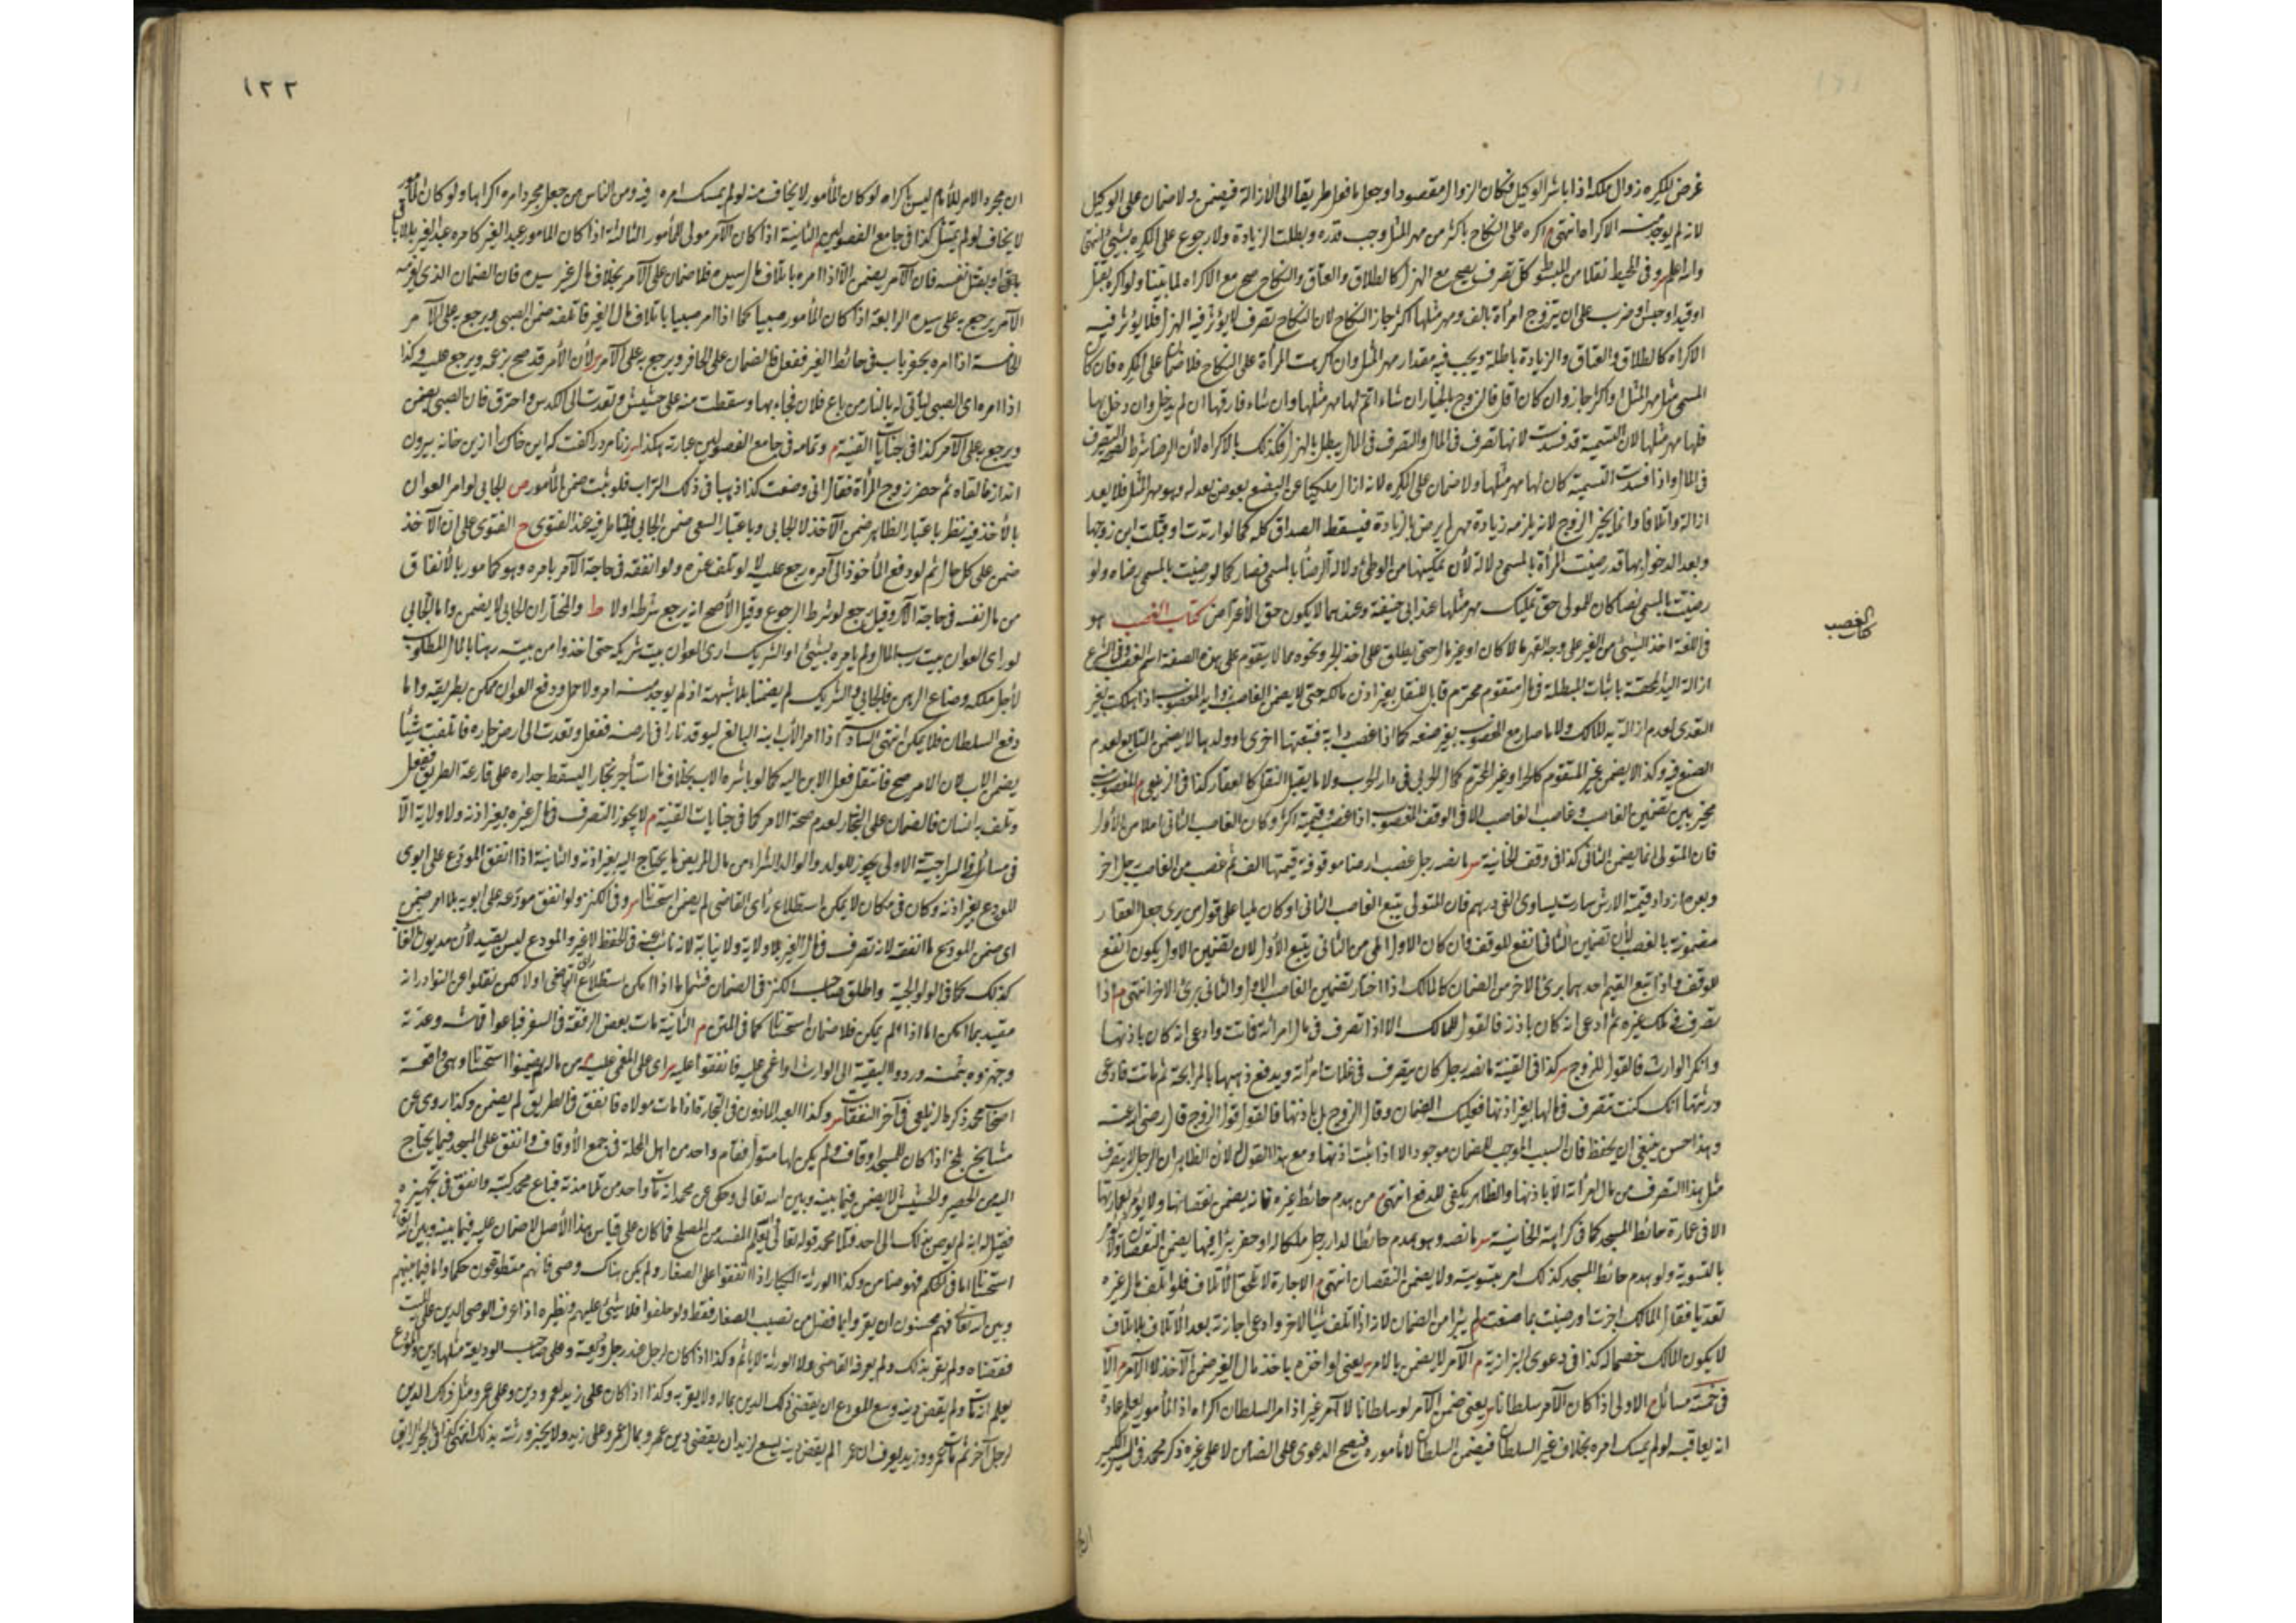 غرض المكره زوال ملكه اذا باشر الوكيل فكان الزوال مقصودا وجعل ما فعل طريقا الى الازالة فيضمن ولا ضمان على الوكيل
لانه لم يوجد منه الاكراه انتهى م اكره على النكاح باكثر من مهر المثل وجب قدره وبطلت الزيادة ولا رجوع على المكره بشيء انتهى
وفي المحيط نقلا من المبسوط كل تصرف يصح مع الهزل كالطلاق والعتاق والنكاح صح مع الاكراه لما بينا ولو اكره بقتل
او قيد او حبس او ضرب على ان يتزوج امرأة بالف ومهر مثلها اكثر جاز النكاح لان النكاح تصرف لا يؤثر فيه الهزل فلا يؤثر فيه
الاكراه كالطلاق والعتاق والزيادة باطلة ويجب فيه مقدار مهر المثل وان اكرهت المرأة على النكاح فلا ضمان على المكره فان كان
المسمى مثل مهر المثل او اكثر جاز وان كان اقل فالزوج بالخيار ان شاء اتم لها مهر مثلها وان شاء فارقها ان لم يدخل وان دخل بها
فلها مهر مثلها لان التسمية قد فسدت لانها تصرف في المال والتصرف في المال يبطل بالهزل فكذلك بالاكراه لأن الرضا شرط لصحة التصرف
في المال واذا فسدت التسمية كان لها مهر مثلها ولا ضمان على المكره لانه ازال ملكها عن البضع بعوض يعدله وهو مهر المثل فلا يعد
ازالة واتلافا وانما يخير الزوج لانه يلزمه زيادة مهر لم يرض بالزيادة فيسقط الصداق كله كما لو ارتدت او قبلت ابن زوجها
وبعد الدخول بها قد رضيت المرأة بالمسمى دلالة لأن تمكينها من الوطئ دلالة الرضا بالمسمى فصار كما لو رضيت بالمسمى رضاه ولو
رضيت بالمسمى نصا كان للمولى حق تمليك مهر مثلها عند ابي حنيفة وعندهما لا يكون حق الاعتراض كتاب الغصب هو
كتاب الغصب
في اللغة اخذ الشيء من الغير على وجه القهر مالا كان او غير مال حتى يطلق على اخذ الحر ونحوه مما لا يتقوم على هذه الصفة اسم الغصب وفي الشرع
ازالة اليد المحقة باثبات المبطلة في مال متقوم محترم قابل للنقل بغير اذن مالكه حتى لا يضمن الغاصب زوايد المغصوب اذا هلكت بغير
التعدي لعدم ازالة يد المالك ولا ما صار مع المغصوب بغير صنعه كما اذا غصب دابة فتبعتها اخرى او ولدها لا يضمن التابع لعدم
الصنع فيه وكذا لا يضمن غير المتقوم كالخمر وغير المحترم كمال الحربي في دار الحرب ولا ما يقبل النقل كالعقار كذا في الزيلعي م المغصوب منه
مخير بين تضمين الغاصب وغاصب الغاصب الا في الوقف المغصوب اذا غصب وقيمته اكثر وكان الغاصب الثاني املا من الأول
فان المتولي انما يضمن الثاني كذا في وقف الخانية س ما نصه رجل غصب ارضا موقوفة قيمتها الف ثم غصب من الغاصب رجل اخر
وبعده ازداد قيمة الارض صارت يساوي الفي درهم فان المتولي يتبع الغاصب الثاني ان كان مليا على قول من يرى جعل العقار
مضمونة بالغصب لأن تضمين الثاني انفع للوقف فان كان الاول املى من الثاني يتبع الأول لان تضمين الاول يكون انفع
للوقف واذا اتبع القيم احدهما برئ الاخر من الضمان كالمالك اذا اختار تضمين الغاصب الاول والثاني برئ الاخر انتهى م اذا
تصرف في ملك غيره ثم ادعى انه كان باذنه فالقول للمالك الا اذا تصرف في مال امرأته فماتت وادعى انه كان باذنها
وانكر الوارث فالقول للزوج س كذا في القنية ما نصه رجل كان يتصرف في غلات امرأته ويدفع ذهبها بالمرابحة ثم ماتت فادعى
ورثتها انك كنت تتصرف في مالها بغير اذنها فعليك الضمان وقال الزوج بل باذنها فالقول قول الزوج قال رضي الله عنه
وهذا حسن ينبغي ان يحفظ فان السبب الموجب للضمان موجود الا اذا ثبت اذنها ومع هذا القول لان الظاهر ان الرجل لا يتصرف
مثل هذا التصرف من مال امرأته الا باذنها والظاهر يكفي للدفع انتهى م من هدم حائط غيره فانه يضمن نقصانها ولا يؤمر بعمارتها
الا في عمارة حائط المسجد كما في كراهة الخانية س ما نصه وهو هدم حائطا لدار رجل ملكا له او حفر بئرا فيها يضمن النقصان ولا يؤمر
بالتسوية ولو هدم حائط المسجد كذلك امر بتسويته ولا يضمن النقصان انتهى م الاجازة لا تلحق الاتلاف فلو اتلف مال غيره
تعديا فقال المالك اجزت او رضيت بما صنعت لم يبرأ من الضمان لانه اذا اتلف شيأ لاخر وادعى اجازته بعد الاتلاف بلا اتلاف
لا يكون المالك خصما له كذا في دعوى البزازية م الآمر لا يضمن بالامر س يعني لو اخذه باخذ مال الغير ضمن الآخذ لا الآمر م الا
في خمسة مسائل م الاولى اذا كان الآمر سلطانا س يعني ضمن الآمر لو سلطانا لا آمر غير اذ امر السلطان اكراه اذ المأمور يعلم عادة
انه يعاقبه لو لم يمسك امره بخلاف غير السلطان فيضمن السلطان لا مأموره فيصح الدعوى على الضامن لا على غيره ذكر محمد في السير الكبير
١٢٢
ان مجرد الامر للأمام ليس باكراه لو كان المأمور لا يخاف منه لو لم يمسك امره رفيه ومن الناس من جعل مجرد امره اكراها ولو كان المأمور
لا يخاف لو لم يمتثل كذا في جامع الفصولين م الثانية اذا كان الآمر مولى للمأمور الثالثة اذا كان المأمور عبد الغير كامره عبد الغير بالاباق
باقا او بقتل نفسه فان الآمر يضمن الا اذا امره باتلاف مال سيده فلا ضمان على الآمر بخلاف مال غير سيده فان الضمان الذي يغرمه
الآمر يرجع به على سيده الرابعة اذا كان المأمور صبيا كما اذا امر صبيا باتلاف مال الغير فاتلفه ضمن الصبي ويرجع به على الآمر
الخامسة اذا امره بحفر باب في حائط الغير ففعل فالضمان على الحافر ويرجع به على الآمر س لأن الأمر قد صح بزعمه ويرجع عليه وكذا
اذا امره اي الصبي ليأتي له بالنار من باغ فلان فجاء بها وسقطت منه على حشيش وتعدت الى الكدس واحترق فان الصبي يضمن
ويرجع به على الآمر كذا في جنايات القنية م وتمامه في جامع الفصولين عبارته هكذا س زنا مردرا كفت كه اين خاك را ازين خانه بيرون
انداز فالقاه ثم حضر زوج المرأة فقال اني وضعت كذا ذهبا في ذلك التراب فلو ثبت ضمن المأمور ص الجابي لو امر العوان
بالأخذ فيه نظر باعتبار الظاهر ضمن الآخذ لا الجابي وباعتبار السعي ضمن الجابي فليتأمل فيه عند الفتوى ح الفتوى على ان الآخذ
ضمن على كل حال ثم لو دفع المأخوذ الى آمره رجع عليه لا لو تلف عنده ولو انفقه في حاجة الآمر بامره وهو كمأمور بالأنفاق
من مال نفسه في حاجة الآمر وقيل يرجع لو شرط الرجوع وقيل الأصح انه يرجع شرطه اولا ط والمختار ان الجابي لا يضمن واما الجابي
لو رأى العوان بيت رب المال ولم يأمره بشيئ او الشريك ارى العوان بيت شريكه حتى اخذوا من بيته رهنا بالمال المطلوب
لأجل ملكه وضاع الرهن فالجابي والشريك لم يضمنا بلا شبهة اذ لم يوجد منه امر ولا حمل ودفع العوان ممكن بطريقه واما
دفع السلطان فلا يمكن انتهى السادسة اذا امر الأب ابنه البالغ ليوقد نارا في ارضه ففعل وتعدت الى ارض جاره فاتلفت شيأ
يضمن الاب لان الامر صح فانتقل فعل الابن اليه كما لو باشره الاب بخلاف ما استأجر نجارا ليسقط جداره على قارعة الطريق ففعل
وتلف به انسان فالضمان على النجار لعدم صحة الامر كما في جنايات القنية م لا يجوز التصرف في مال غيره بغير اذنه ولا ولاية الا
في مسائل في السراجية الاولى يجوز للولد والوالد الشراء من مال المريض ما يحتاج اليه بغير اذنه والثانية اذا انفق المودع على ابوي
المودع بغير اذنه وكان في مكان لا يمكن استطلاع رأي القاضي لم يضمن استحسانا س وفي الكنز ولو انفق مودعه على ابويه بلا امر ضمن
اي ضمن المودع ما انفقه لانه تصرف في مال الغير بلا ولاية ولا نيابة لانه نائب عنه في الحفظ لا غير والمودع ليس بقيد لأن مديون الغائب
كذلك كما في الولوالجية واطلق صاحب الكنز في الضمان فشمل ما اذا امكن استطلاع رأي القاضي اولا لكن نقلوا عن النوادر انه
مقيد بما امكن اما اذا لم يمكن فلا ضمان استحسانا كما في المتن م الثانية مات بعض الرفقة في السفر فباعوا قماشه وعدته
وجهزوه بثمنه وردوا البقية الى الوارث او اغمي عليه فانفقوا عليه س اي على المغمى عليه م من ماله لم يضمنوا استحسانا وهي واقعة
اصحاب محمد ذكره الزيلعي في آخر النفقات س وكذا العبد المأذون في التجارة اذا مات مولاه فانفق في الطريق لم يضمن وكذا روى عن
مشايخ بلخ اذا كان للمسجد اوقاف ولم يكن لها متول فقام واحد من اهل المحلة في جمع الأوقاف وانفق على المسجد فيما يحتاج
اليه من الحصير والحشيش لا يضمن فيما بينه وبين الله تعالى وحكى عن محمد انه مات واحد من تلامذته فباع محمد كتبه وانفق في تجهيزه
فقيل له انه لم يوص بذلك الى احد فتلا محمد قوله تعالى والله يعلم المفسد من المصلح فما كان على قياس هذا الأصل لا ضمان عليه فيما بينه وبين الله تعالى
استحسانا اما في الحكم فهو ضامن وكذا الورثة الكبار اذا انفقوا على الصغار ولم يكن هناك وصي فانهم متطوعون حكما واما فيما بينهم
وبين الله تعالى فهم محسنون ان يقروا بما فضل من نصيب الصغار فقط ولو حلفوا فلا شيئ عليهم ونظيره اذا عرف الوصي الدين على الميت
فقضاه ولم يقر بذلك ولم يعرفه القاضي ولا الورثة لا ياثم وكذا اذا كان لرجل عند رجل وديعة وعلى صاحب الوديعة مثلها دين والمودع
يعلم انه مات ولم يقض دينه وسع المودع ان يقضي ذلك الدين بماله ولا يقر به وكذا اذا كان على زيد لعمرو دين وعلى عمرو مثل ذلك الدين
لرجل آخر ثم مات عمرو وزيد يعرف ان عمرا لم يقض دينه يسع لزيد ان يقضي دين عمرو بمال عمرو على زيد ولا يخبر ورثته بذلك انتهى كذا في البحر الرائق